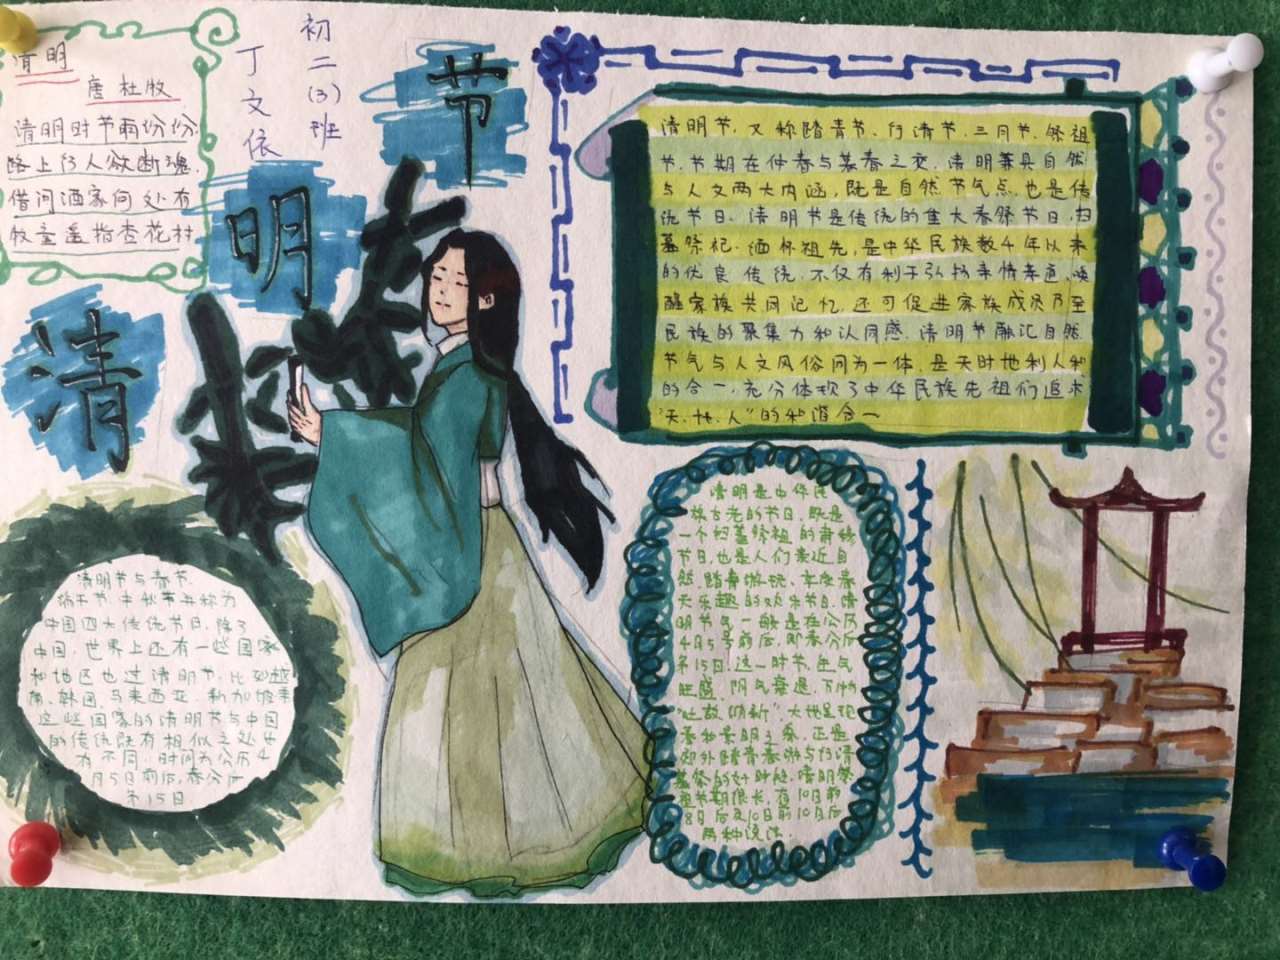 清明
唐 杜牧
清明时节雨份份
路上行人欲断魂.
借问酒家何处有
牧童遥指杏花村
初二(3)班
丁文依
清明节
清明节,又称踏青节、行清节、三月节、祭祖
节,节期在仲春与暮春之交.清明兼具自然
与人文两大内涵,既是自然节气点,也是传
统节日.清明节是传统的重大春祭节日,扫
墓祭祀.缅怀祖先,是中华民族数千年以来
的优良传统,不仅有利于弘扬亲情孝道,唤
醒家族共同记忆,还可促进家族成员乃至
民族的聚集力和认同感.清明节融汇自然
节气与人文风俗同为一体,是天时地利人和
的合一,充分体现了中华民族先祖们追求
"天、地、人"的和谐合一
清明节与春节、
端午节、中秋节并称为
中国四大传统节日,除了
中国,世界上还有一些国家
和地区也过清明节,比如越
南、韩国、马来西亚、新加坡等
这些国家的清明节与中国
的传统既有相似之处也
有不同,时间为公历4
月5日前后,春分后
第15日
清明是中华民
族古老的节日,既是
一个扫墓祭祖的肃穆
节日,也是人们亲近自
然、踏青游玩、享受春
天乐趣的欢乐节日,清
明节气一般是在公历
4月5号前后,即春分后
第15日.这一时节,生气
旺盛、阴气衰退,万物
"吐故纳新",大地呈现
春和景明之象,正是
郊外踏青春游与行清
墓祭的好时候,清明祭
祖节期很长,有10日前
8日后及10日前10日后
两种说法.